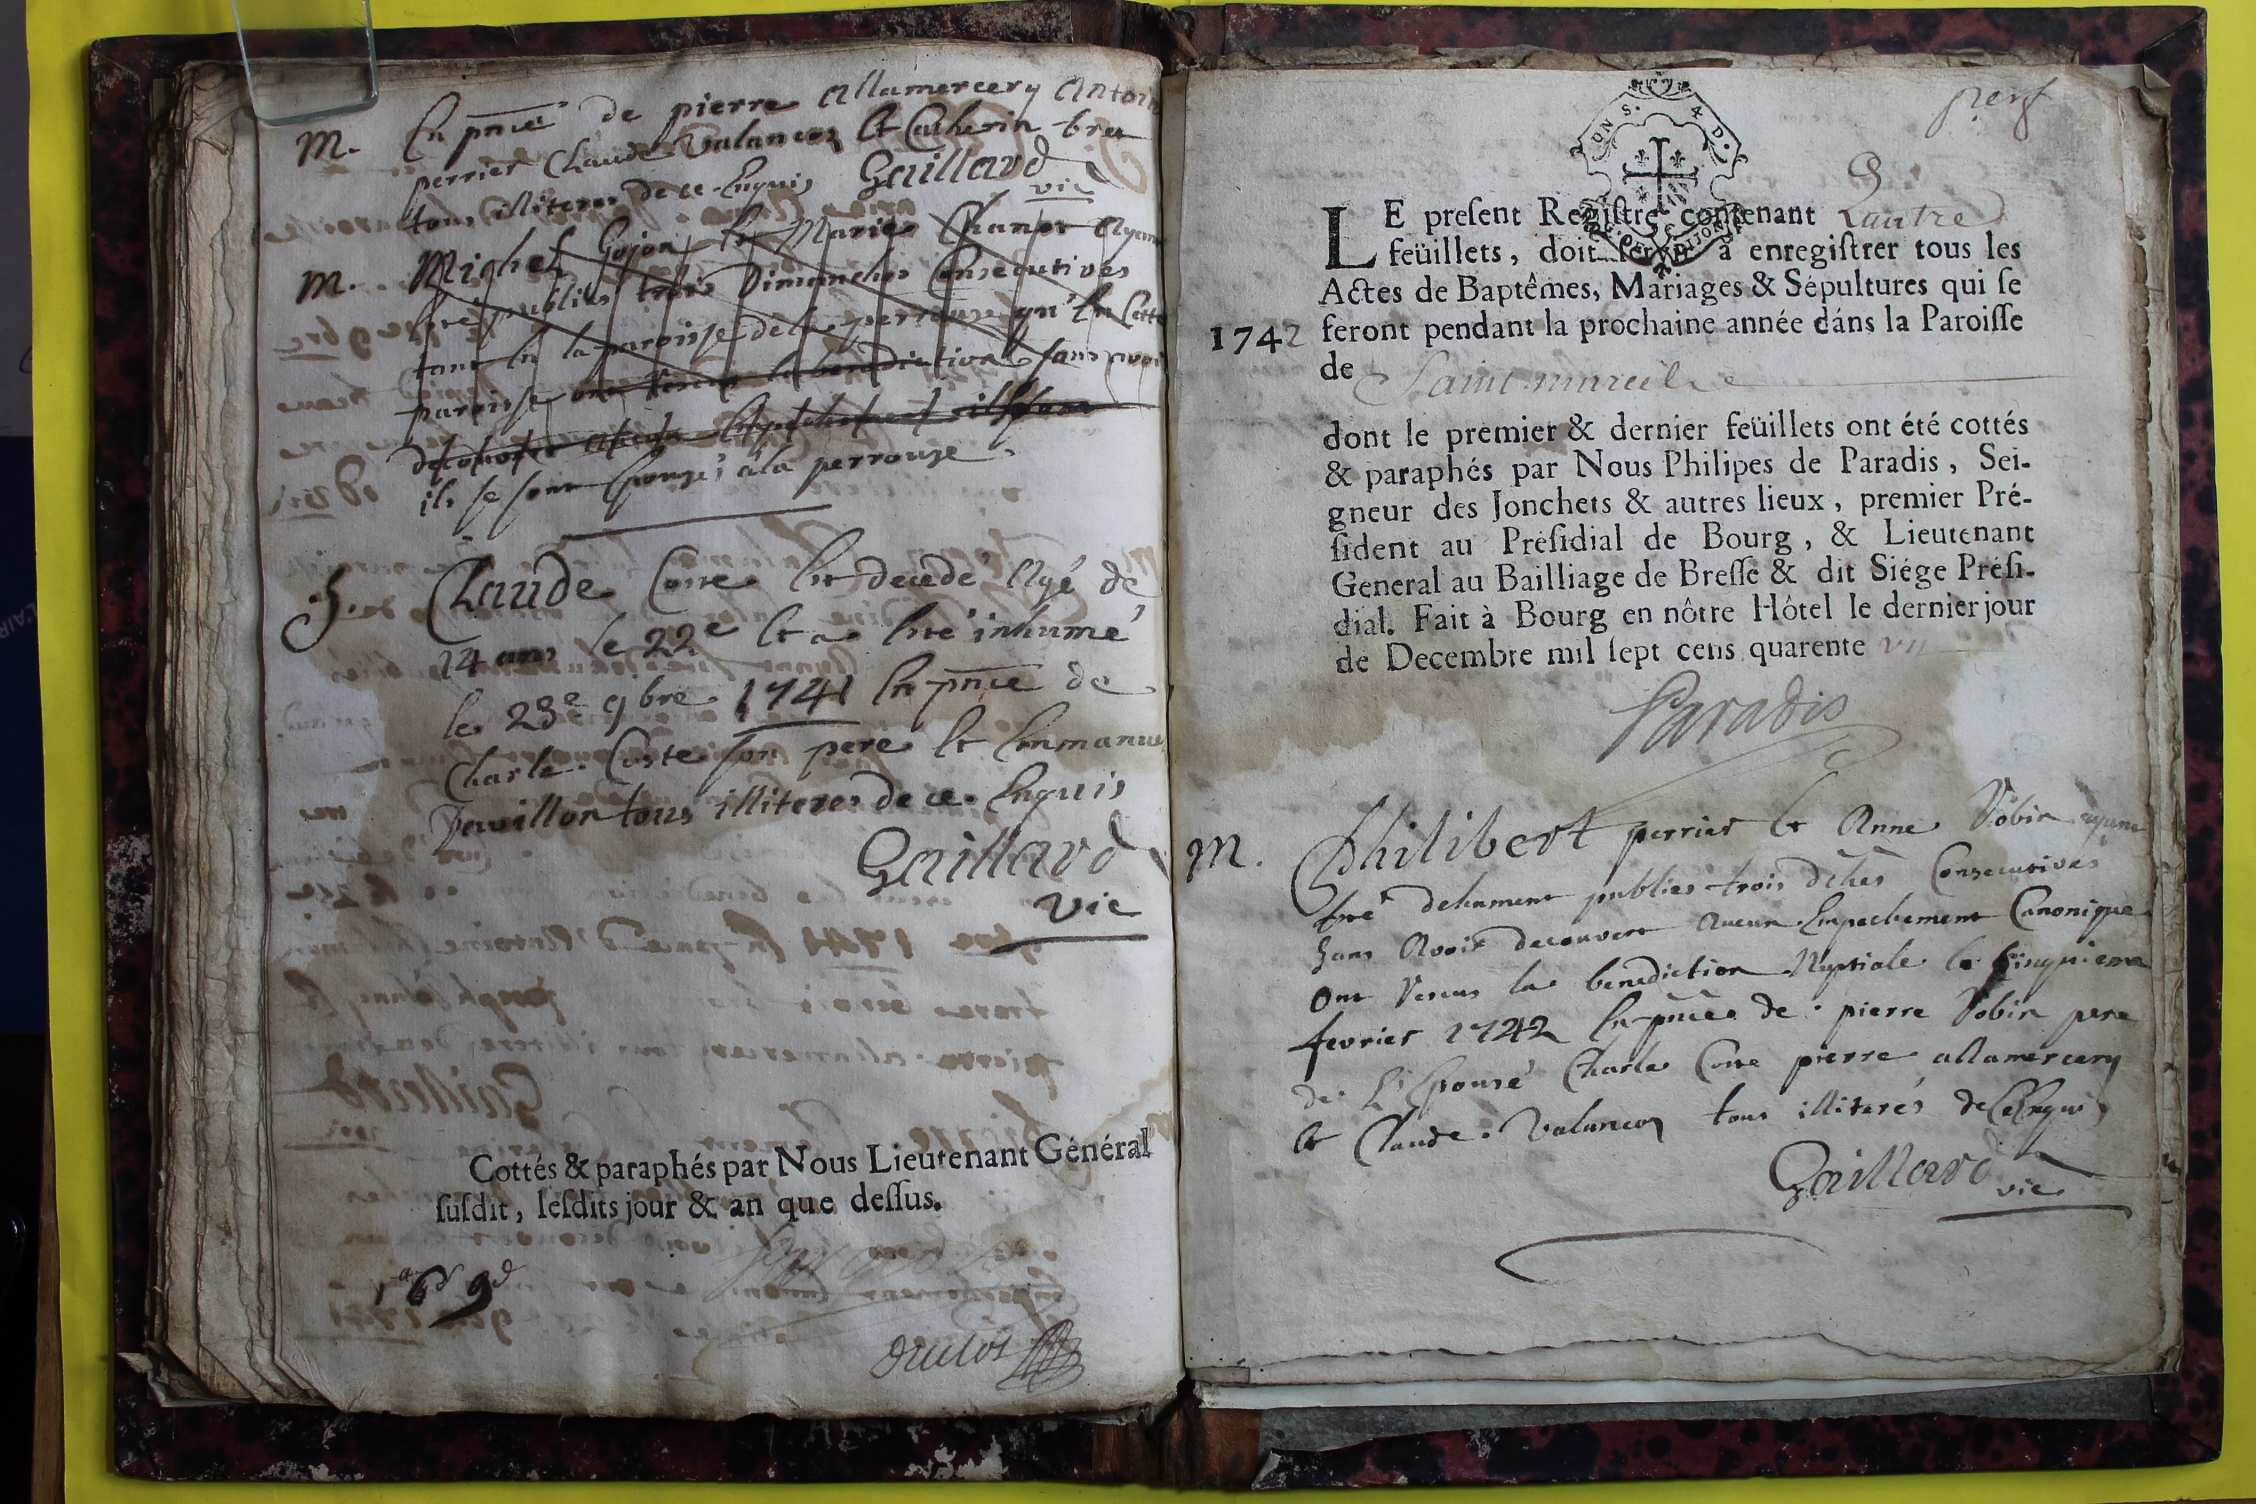 M. En pnce de pierre allamercery Antoin
perrier Claude Valancon et Catherin bret
tous illiteres de ce Enquis Gaillard
vic
M. Michel Gojon et Marie Chanor Ayant
été publiés trois Dimanches Consecutives
tant en la paroisse de la perrouze qu'En Cette
paroisse ont Receu la benediction sans avoir
decouvert aucun Empechement
ils se sont Epousés a la perrouze.
S. Claude Coste Est decedé Agé de
14 ans le 22e et a été inhumé
le 23e 9bre 1741 En pnce de
Charle Coste son pere et Emmanuel
pavillon tous illiteres de ce Enquis
Gaillard
vic
Cottés & paraphés par Nous Lieutenant Général
susdit, lesdits jour & an que dessus.
DONS. 4 D.
LE present Registre contenant quatre
feüillets, doit servir à enregistrer tous les
Actes de Baptêmes, Mariages & Sépultures qui se
1742 feront pendant la prochaine année dáns la Paroisse
de Saint marcel
dont le premier & dernier feüillets ont été cottés
& paraphés par Nous Philipes de Paradis, Sei-
gneur des Jonchets & autres lieux, premier Pré-
sident au Présidial de Bourg, & Lieutenant
General au Bailliage de Bresse & dit Siége Présí-
dial. Fait à Bourg en nôtre Hôtel le dernier jour
de Decembre mil sept cens quarente un
Paradis
M. Philibert perrier et Anne Robin ayant
été dehument publiés trois dches Consecutives
Sans Avoir decouvert Aucun Empechement Canonique
Ont Receus la benediction Nuptiale le Cinquieme
fevrier 1742 En pnce de pierre Robin pere
de L'Epouse Charle Coste pierre allamercery
et Claude Valancon tous illiterés de ce Enquis
Gaillard
vic